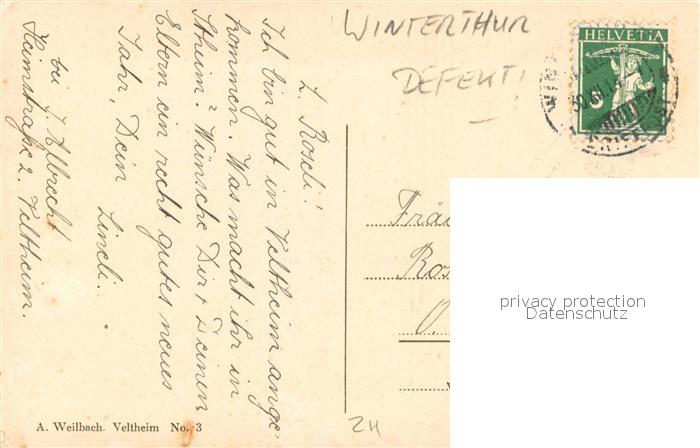 WINTERTHUR
DEFEKT!
HELVETIA
L. Roseli!
Ich bin gut in Veltheim ange-
kommen. Was macht ihr in
Stheim? Wünsche Dir & Deinen
Eltern ein recht gutes neues
Jahr, Dein
Lineli.
bei J. Albrecht
Heimstraße 2. Veltheim.
Fräu
Ros
privacy protection
Datenschutz
A. Weilbach. Veltheim No. 3
ZH